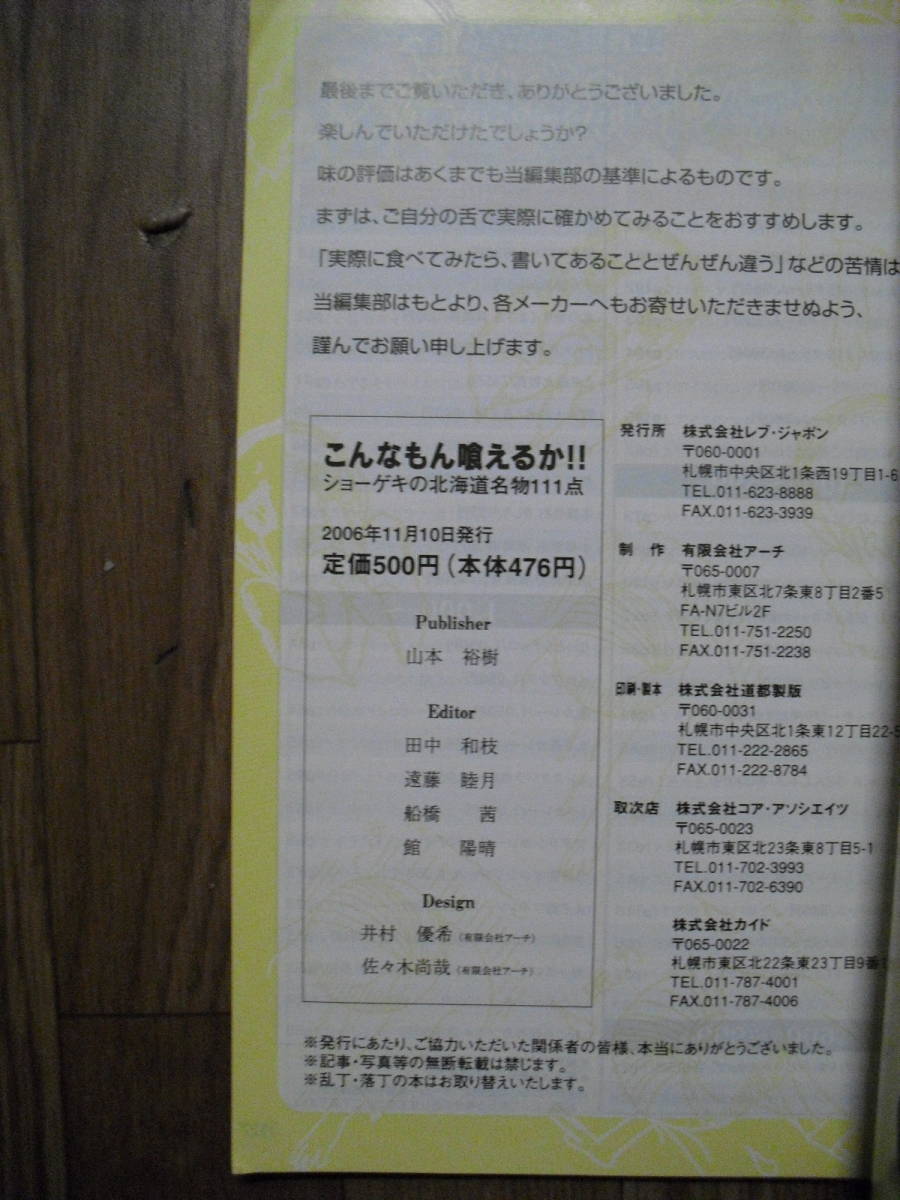 最後までご覧いただき、ありがとうございました。
楽しんでいただけたでしょうか?
味の評価はあくまでも当編集部の基準によるものです。
まずは、ご自分の舌で実際に確かめてみることをおすすめします。
「実際に食べてみたら、書いてあることとぜんぜん違う」などの苦情は
当編集部はもとより、各メーカーへもお寄せいただきませぬよう、
謹んでお願い申し上げます。
こんなもん喰えるか!!
ショーゲキの北海道名物111点
2006年11月10日発行
定価500円(本体476円)
Publisher
山本 裕樹
Editor
田中 和枝
遠藤 睦月
船橋 茜
館 陽晴
Design
井村 優希(有限会社アーチ)
佐々木尚哉(有限会社アーチ)
発行所 株式会社レブ・ジャポン
〒060-0001
札幌市中央区北1条西19丁目1-6
TEL.011-623-8888
FAX.011-623-3939
制 作 有限会社アーチ
〒065-0007
札幌市東区北7条東8丁目2番5
FA-N7ビル2F
TEL.011-751-2250
FAX.011-751-2238
印刷・製本 株式会社道都製版
〒060-0031
札幌市中央区北1条東12丁目22-5
TEL.011-222-2865
FAX.011-222-8784
取次店 株式会社コア・アソシエイツ
〒065-0023
札幌市東区北23条東8丁目5-1
TEL.011-702-3993
FAX.011-702-6390
株式会社カイド
〒065-0022
札幌市東区北22条東23丁目9番
TEL.011-787-4001
FAX.011-787-4006
※発行にあたり、ご協力いただいた関係者の皆様、本当にありがとうございました。
※記事・写真等の無断転載は禁じます。
※乱丁・落丁の本はお取り替えいたします。